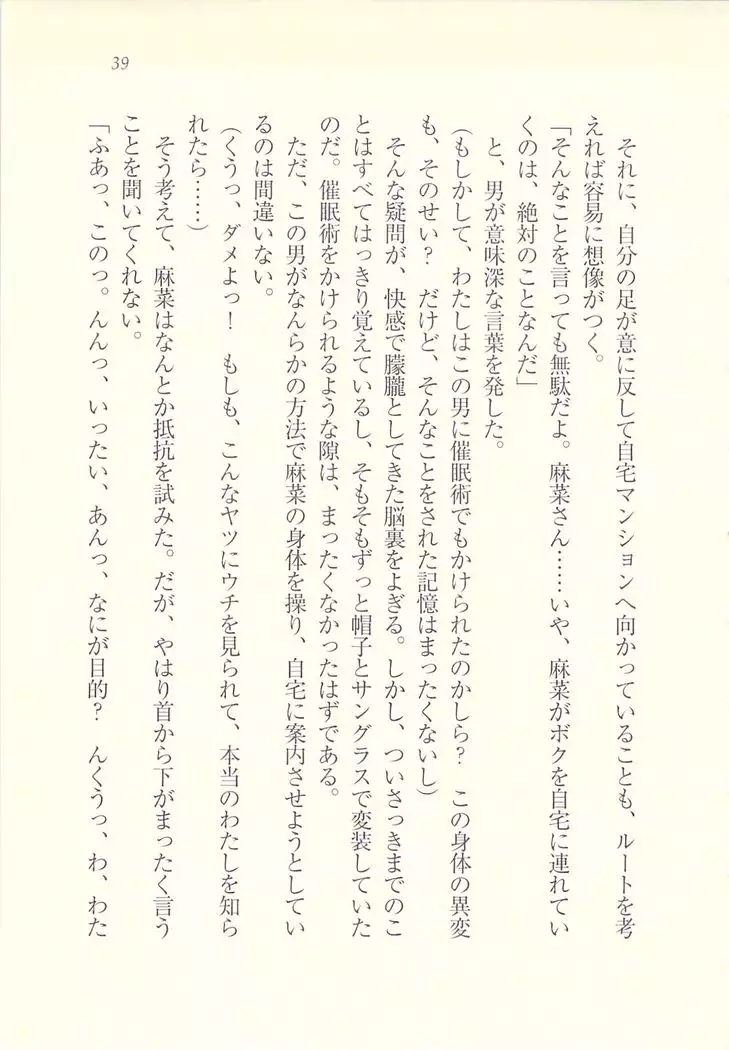 39
それに、自分の足が意に反して自宅マンションへ向かっていることも、ルートを考
えれば容易に想像がつく。
「そんなことを言っても無駄だよ。麻菜さん……いや、麻菜がボクを自宅に連れてい
くのは、絶対のことなんだ」
と、男が意味深な言葉を発した。
（もしかして、わたしはこの男に催眠術でもかけられたのかしら？　この身体の異変
も、そのせい？　だけど、そんなことをされた記憶はまったくないし）
そんな疑問が、快感で朦朧としてきた脳裏をよぎる。しかし、ついさっきまでのこ
とはすべてはっきり覚えているし、そもそもずっと帽子とサングラスで変装していた
のだ。催眠術をかけられるような隙は、まったくなかったはずである。
ただ、この男がなんらかの方法で麻菜の身体を操り、自宅に案内させようとしてい
るのは間違いない。
（くうっ、ダメよっ！　もしも、こんなヤツにウチを見られて、本当のわたしを知ら
れたら……）
そう考えて、麻菜はなんとか抵抗を試みた。だが、やはり首から下がまったく言う
ことを聞いてくれない。
「ふあっ、このっ。んんっ、いったい、あんっ、なにが目的？　んくうっ、わ、わた